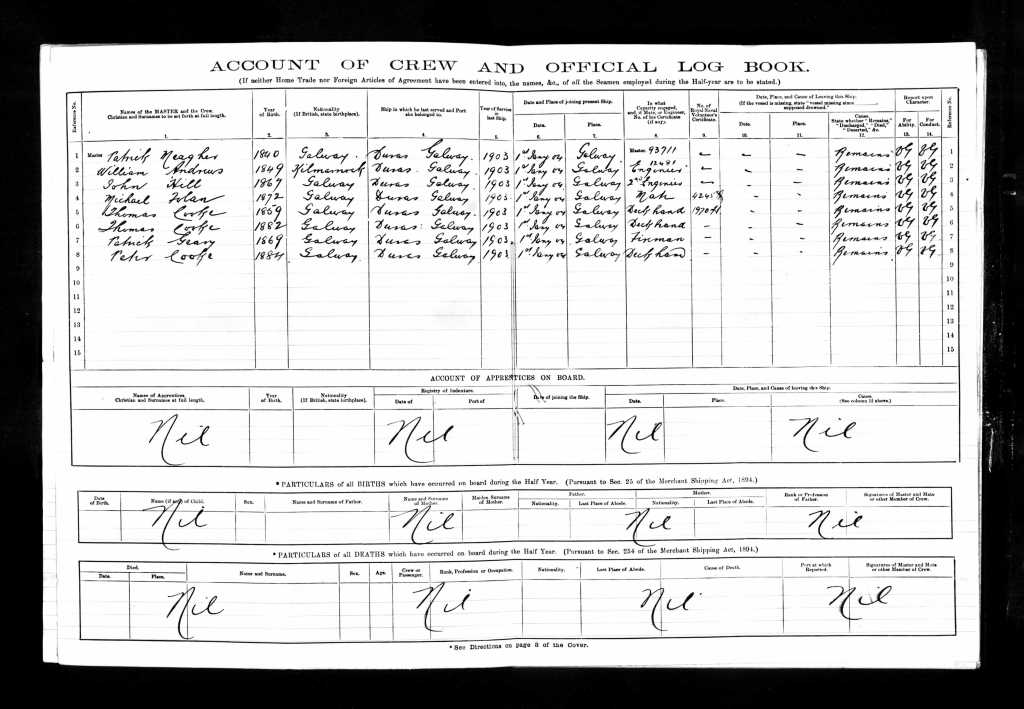 ACCOUNT OF CREW AND OFFICIAL LOG BOOK.
(If neither Home Trade nor Foreign Articles of Agreement have been entered into, the names, &c., of all the Seamen employed during the Half-year are to be stated.)
Reference No. Names of the MASTER and the Crew. Christian and Surnames to be set forth at full length. Year of Birth. Nationality (If British, state birthplace). Ship in which he last served and Port she belonged to. Year of Service in last Ship. Date and Place of joining present Ship. In what Capacity engaged, and, if Mate, or Engineer, No. of his Certificate (if any). No. of Royal Naval Volunteer's Certificate. Date, Place, and Cause of Leaving this Ship. (If the vessel is missing, state "vessel missing since supposed drowned.") Report upon Character. Reference No.
Date. Place. Date. Place. Cause. State whether "Remains," "Discharged," "Died," "Deserted," &c. For Ability. For Conduct.
1. 2. 3. 4. 5. 6. 7. 8. 9. 10. 11. 12. 13. 14.
1 Master Patrick Meagher 1840 Galway. Duras Galway. 1903 1st Jany 04 Galway Master 93711 – – – Remains VG VG 1
2 William Andrews 1849 Kilmarnock Duras. Galway. 1903 1st Jany 04 Galway Engineer 12481 – – – Remains VG VG 2
3 John Hill 1867 Galway Duras Galway. 1903 1st Jany 04 Galway 2nd Engineer – – – Remains VG VG 3
4 Michael Folan 1872 Galway Duras Galway 1903 1st Jany 04 Galway Mate – – Remains VG VG 4
5 Thomas Cooke 1859 Galway Duras Galway. 1903 1st Jany 04 Galway Deck hand – – Remains VG VG 5
6 Thomas Cooke 1882 Galway Duras Galway 1903 1st Jany 04 Galway Deck hand – – – Remains VG VG 6
7 Patrick Geary 1869 Galway Duras Galway 1903. 1st Jany 04 Galway Fireman – – – Remains VG VG 7
8 Peter Cooke 1884 Galway Duras Galway 1903 1st Jany 04 Galway Deck hand – – – Remains VG VG 8
9 9
10 10
11 11
12 12
13 13
14 14
15 15
ACCOUNT OF APPRENTICES ON BOARD.
Names of Apprentices. Christian and Surnames at full length. Year of Birth. Nationality (If British, state birthplace). Registry of Indenture. Date of joining the Ship. Date, Place, and Cause of leaving this Ship.
Date of Port of Date. Place. Cause. (See column 12 above.)
Nil Nil Nil Nil
*PARTICULARS of all BIRTHS which have occurred on board during the Half Year. (Pursuant to Sec. 25 of the Merchant Shipping Act, 1894.)
Date of Birth. Name (if any) of Child. Sex. Name and Surname of Father. Name and Surname of Mother. Maiden Surname of Mother. Father. Mother. Rank or Profession of Father. Signatures of Master and Mate or other Member of Crew.
Nationality. Last Place of Abode. Nationality. Last Place of Abode.
Nil Nil Nil Nil
*PARTICULARS of all DEATHS which have occurred on board during the Half Year. (Pursuant to Sec. 254 of the Merchant Shipping Act, 1894.)
Died. Name and Surname. Sex. Age. Crew or Passenger. Rank, Profession or Occupation. Nationality. Last Place of Abode. Cause of Death. Port at which Reported. Signatures of Master and Mate or other Member of Crew.
Date. Place.
Nil Nil Nil Nil
*See Directions on page 3 of the Cover.